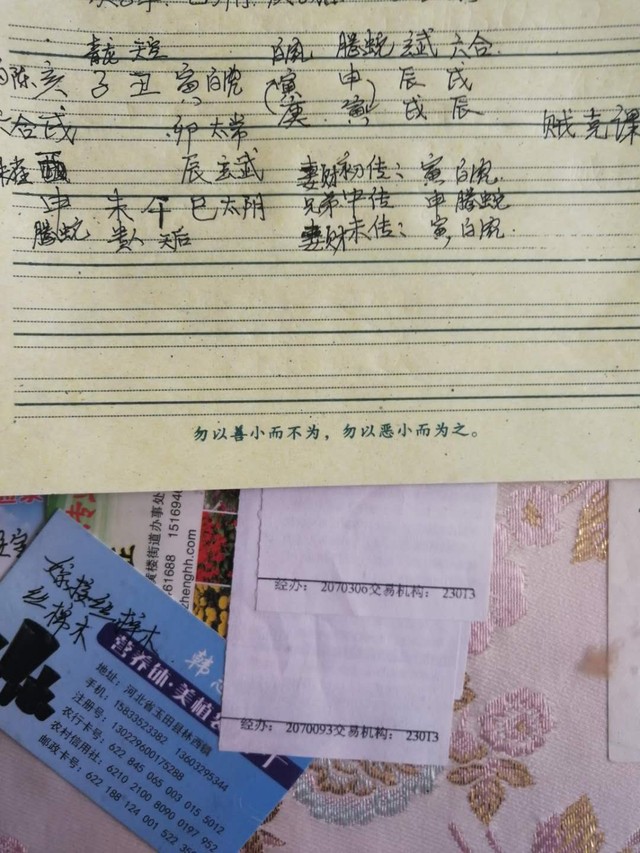 青龙 天空 白虎 腾蛇 玄武 六合
陈 亥 子 丑 寅 白虎 (寅 申 辰 戌
庚 寅) 戌 辰
六合 戌 卯 太常 贼克课
酉 辰 玄武 妻财初传：寅 白虎
申 未 午 巳 太阴 兄弟中传 申 腾蛇
腾蛇 贵人 天后 妻财末传：寅，白虎
勿以善小而不为，勿以恶小而为之。
黄楼街道办事处
61688 1516948
zhenghh.com
经办： 2070306交易机构： 23013
经办： 2070093交易机构： 23013
嫁接丝棉木
丝棉木
营养钵·美植
韩
地址：河北省玉田县林西镇
手机：15833523382 13603295344
注册号：130229600175288
农行卡号：622 845 065 003 015 5012
农村信用社：6210 2100 8090 0197 952
邮政卡号：622 188 124 001 522 35